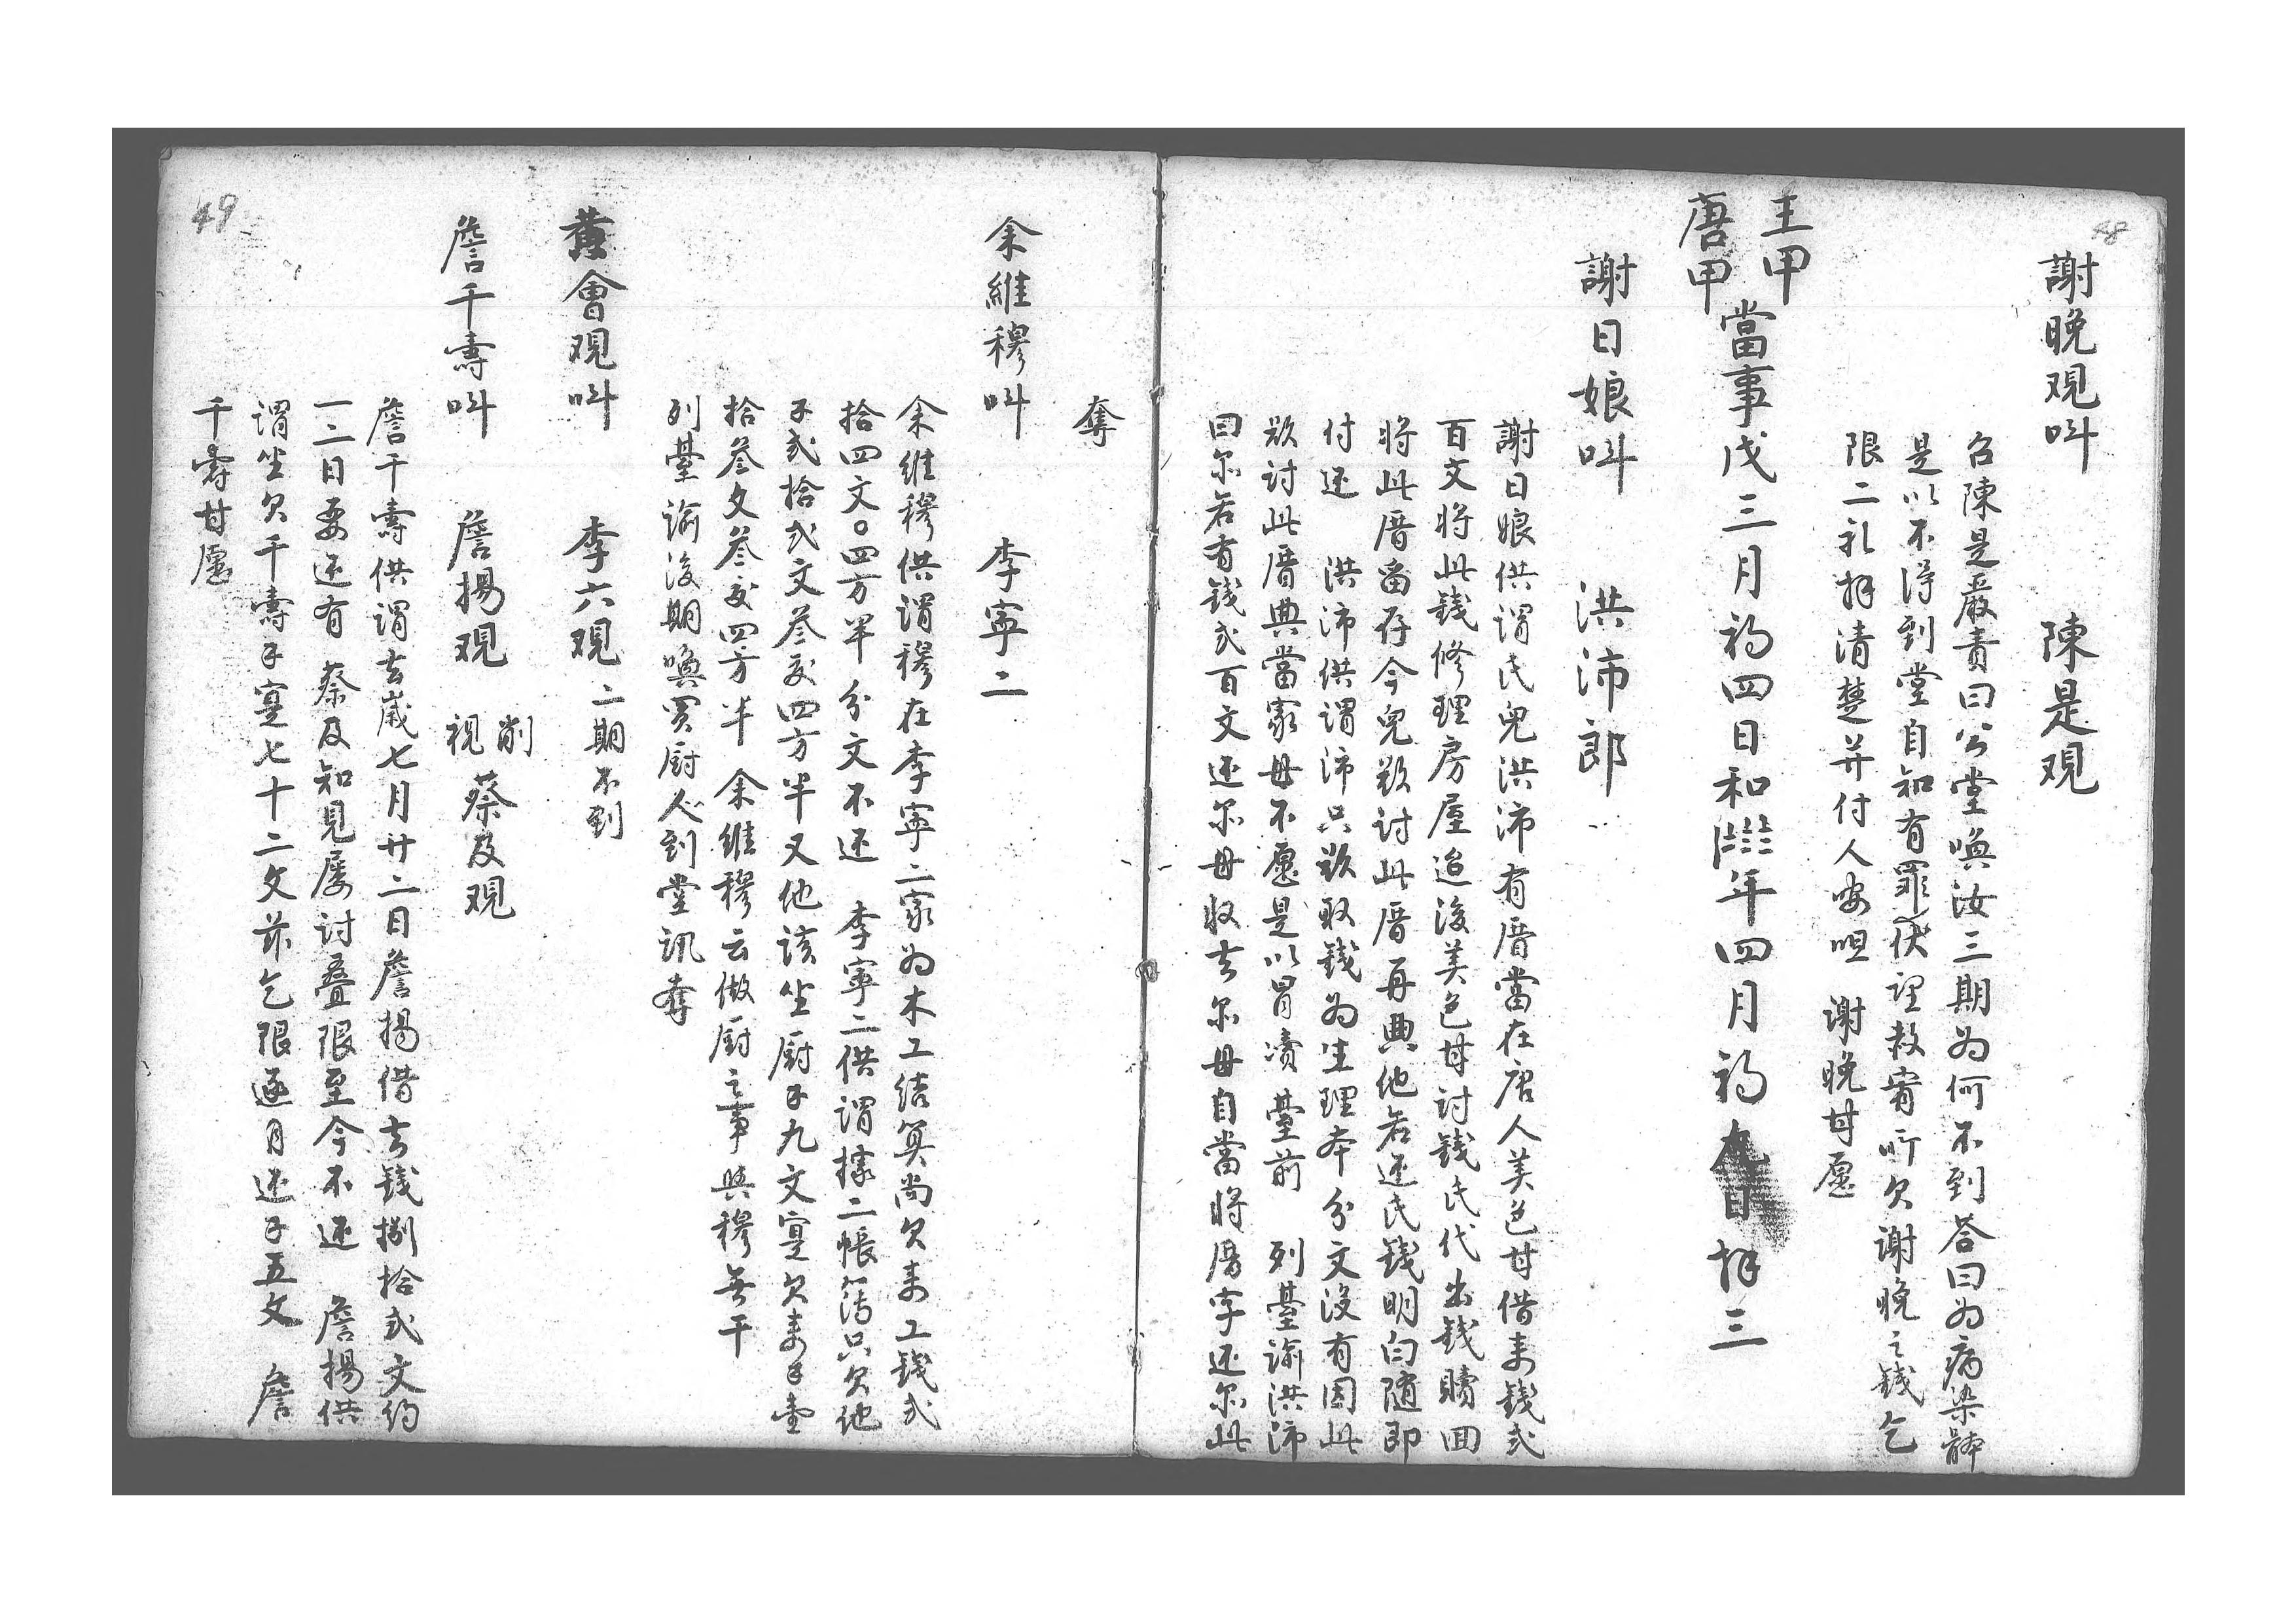 48
謝晚观呌 陳是观
召陳是嚴責曰公堂喚汝三期為何不到荅曰為病染體
是以不得到堂自知有罪伏望赦宥所欠謝晚之錢乞
限二礼拜清楚并付人安呾 謝晚甘愿
王甲
唐甲
當事戊三月初四日和 年四月初九日拜三
謝日娘呌 洪沛郎
謝日娘供謂氏兒洪沛有厝當在唐人美色甘借来錢弍
百文将此錢修理房屋迨後美色甘討錢氏代出錢贖囬
将此厝當存今兒欵討此厝再典他若还氏錢明白随即
付还 洪沛供謂沛只欵取錢為生理本分文没有因此
欵討此厝典當家母不愿是以冒凟 臺前 列臺諭洪沛
曰尔若有錢弍百文还尔母收去尔母自當将厝字还尔此
奪
余維穆呌 李寧二
余維穆供謂穆在李寧二家为木工结算尚欠来工錢弍
拾四文〇四方半分文不还 李寧二供謂據二帳簿只欠他
子弍拾弍文叁亥四方半又他該坐厨子九文寔欠来子壹
拾叁文叁亥四方半 余維穆云做厨之事與穆無干
列臺諭後期喚買厨人到堂訊奪
黄會观呌 李六观 二期不到
詹千壽呌 詹揚观 削視 蔡及观
詹千壽供謂去歲七月廿二日詹揚借去錢捌拾弍文約
一二日要还有 蔡及知見屢討叠限至今不还 詹揚供
謂坐欠千壽子寔七十二文兹乞限逐月还子五文 詹
千壽甘愿
49